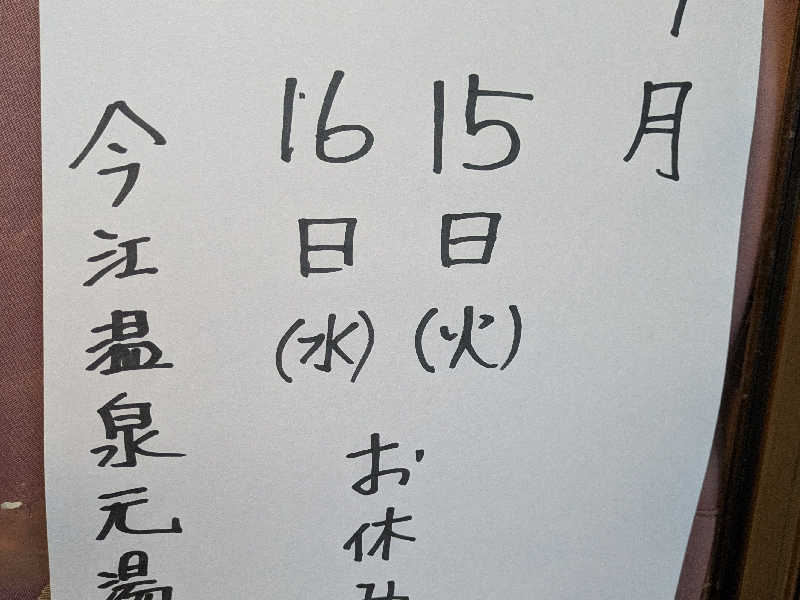 月
15日(火)
16日(水)
お休み
今江温泉元湯